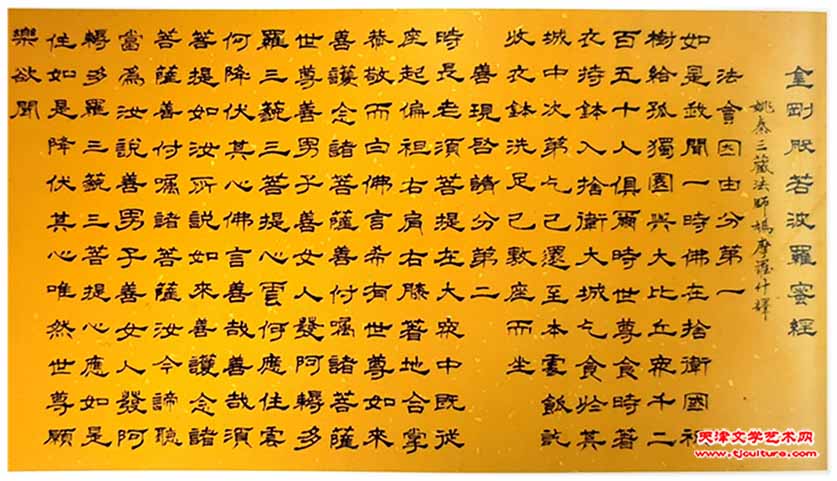 金剛般若波羅蜜經
姚秦三藏法師鳩摩羅什譯
法會因由分第一
如是我聞一時佛在捨衛國祇
樹給孤獨園與大比丘眾千二
百五十人俱爾時世尊食時著
衣持鉢入捨衛大城乞食於其
城中次第乞已還至本處飯訖
收衣鉢洗足已敷座而坐
善現啟請分第二
時是老須菩提在大眾中既從
座起偏袒右肩右膝著地合掌
恭敬而白佛言希有世尊如來
善護念諸菩薩善付囑諸菩薩
世尊善男子善女人發阿耨多
羅三藐三菩提心雲何應住雲
何降伏其心佛言善哉善哉須
菩提如汝所說如來善護念諸
菩薩善付囑諸菩薩汝今諦聽
當為汝說善男子善女人發阿
耨多羅三藐三菩提心應如是
住如是降伏其心唯然世尊願
樂欲聞
天津文学艺术网
www.tjculture.com